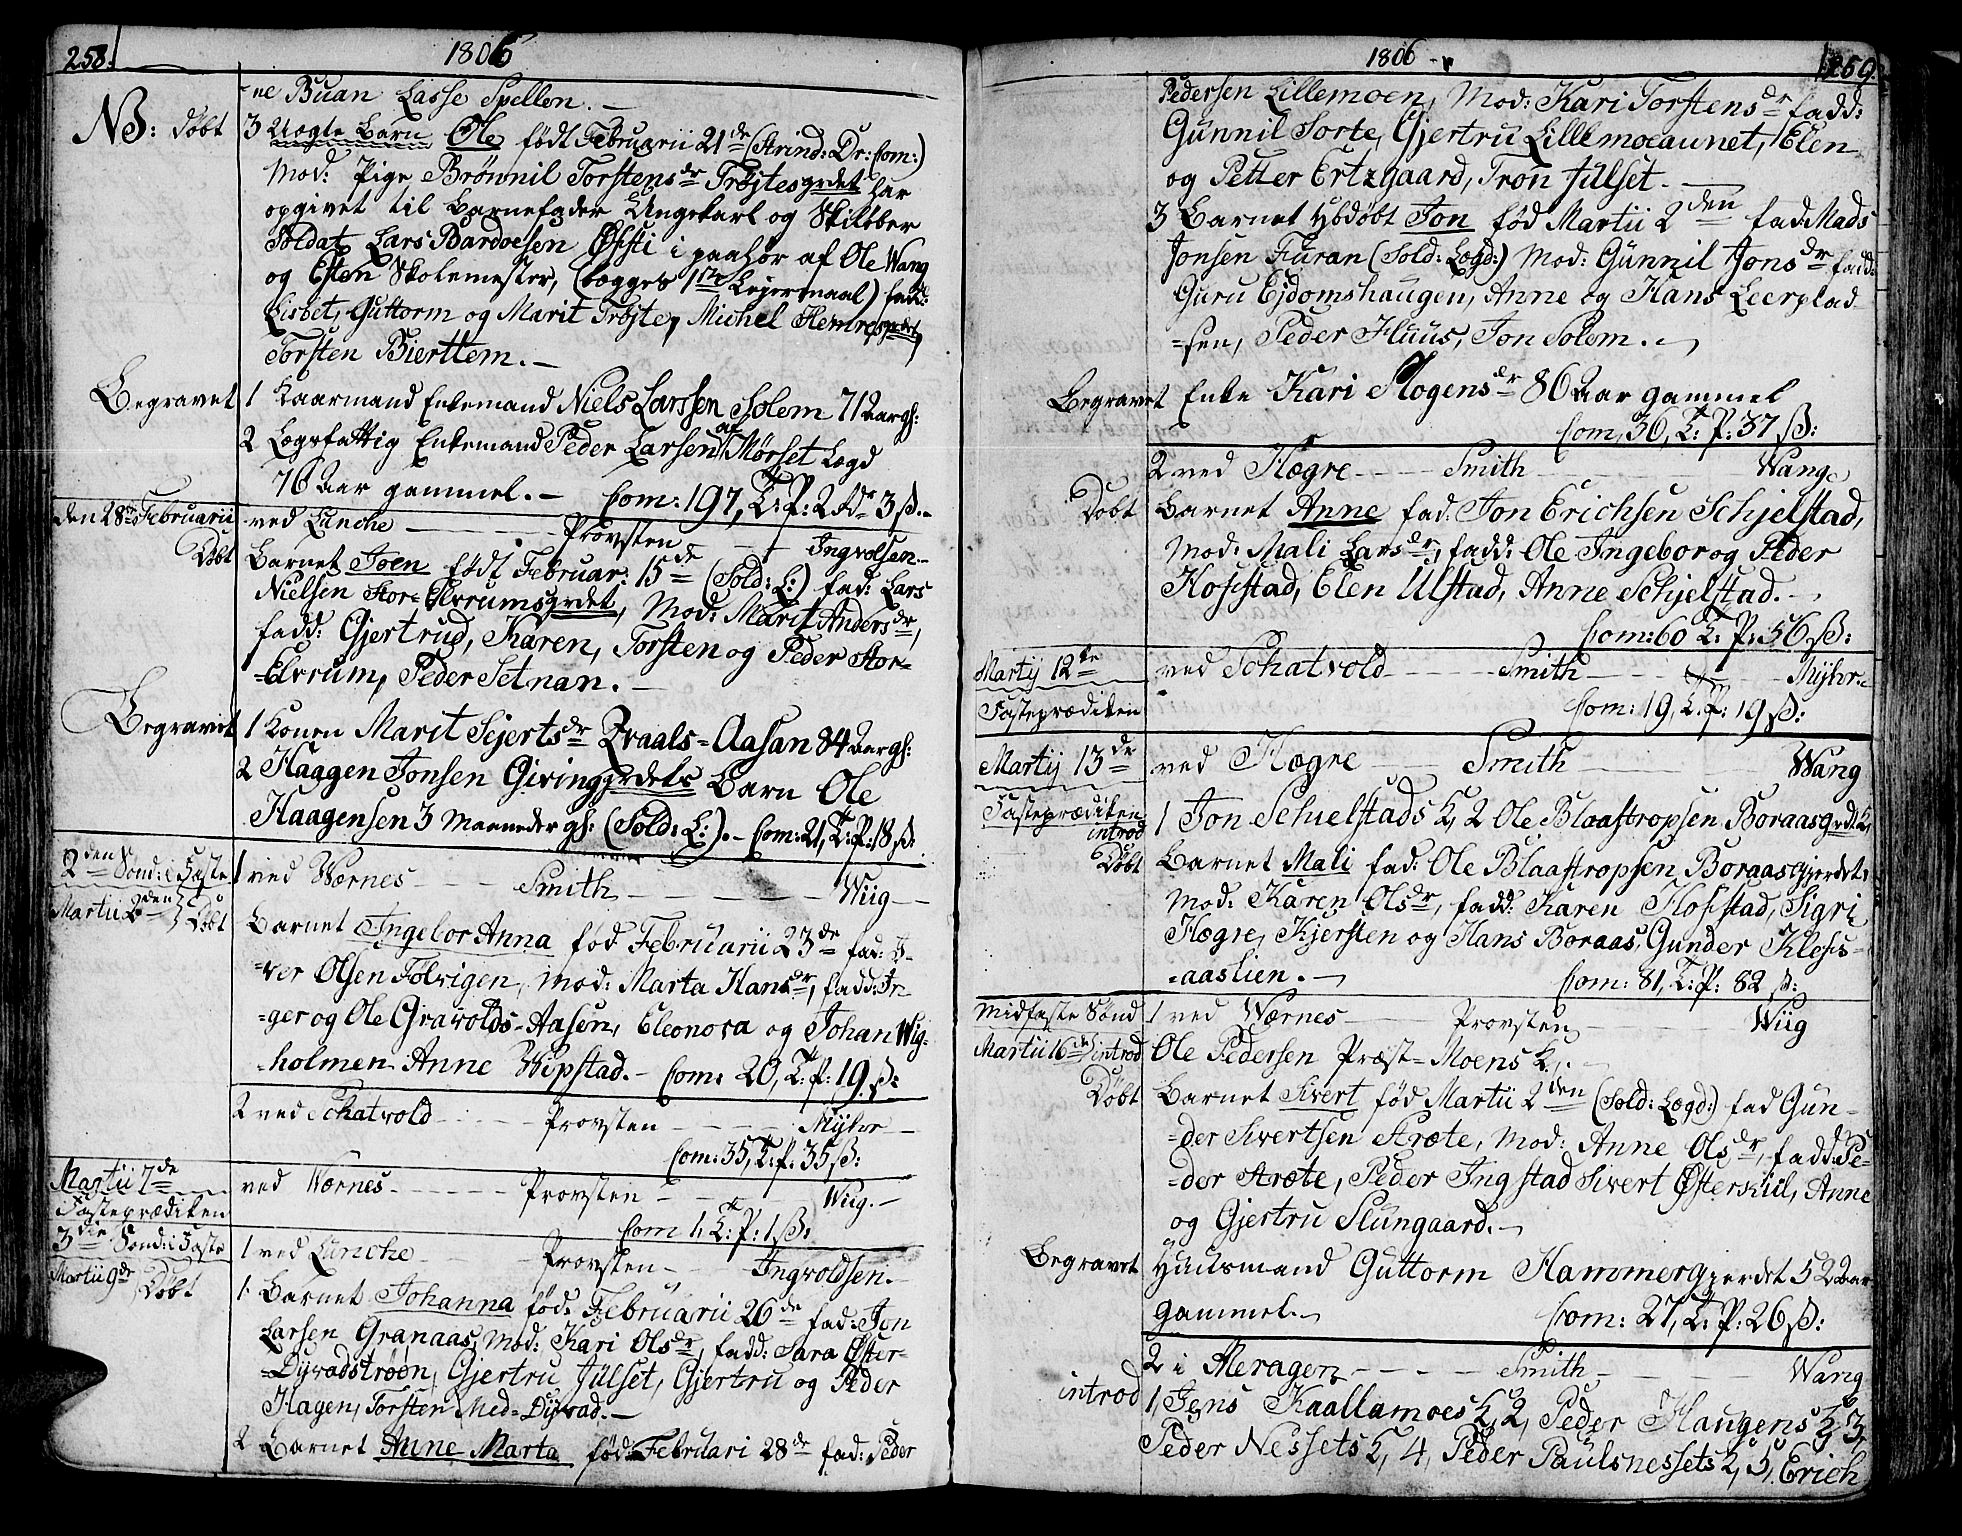 258. 1806
-ne Buan Lasse Spellen. -
NB: døbt 3 Uægte Barn Ole født Februarii 21de (Strind: Dr: Com:)
Mod: Pige Brönnil Torstensdr Trøjtesgrdet har
opgivet til Barnefader Ungekarl og Skilöber
Soldat Lars Bardoesen Øfsti i paahør af Ole Wang
og Esten Skolemester, (begges 1ste Lejermaal) fadd:
Lisbet, Guttorm og Marit Trøjte, Michel Hemregrdet,
Torsten Bierttem. -
Begravet 1 Kaarmand Enkemand Niels Larssen Solem 71 Aar gl:
2 Lægsfattig Enkemand Peder Larsen af Mørset Lægd
76 Aar gammel. - Com: 197, T: P: 2 rdr 3 ß. -
Den 28de Februarii ved Lunche - Provsten - Ingvolsen. -
Døbt Barnet Joen født Februar: 15de (Sold: L:) fad: Lars
Nielsen Stor-Elvrumsgrdet, Mod: Marit Andersdr,
fadd: Gjertrud, Karen, Torsten og Peder Stor-
-Elvrum, Peder Setnan. -
Begravet 1 Konen Marit Sejertsdr Kvaals-Aasan 84 Aar gl:
2 Haagen Jonsen Givinggrdets Barn Ole
Haagensen 3 Maaneder gl: (Sold: L:). - Com: 21, T: P: 18 ß:
2den Sönd: i Faste 1 ved Wærnes - Smith - Wiig -
Martii 2den Døbt Barnet Ingebor Anna fød Februarii 23de fad: I-
-ver Olsen Følvigen, Mod: Marta Hansdr, fadd: In-
-ger og Ole Grawolds-Aasen, Eleonora og Johan Wig-
-holmen Anne Wipstad. - Com: 20, T: P: 19. ß:
2 ved Schatvold - Provsten - Myhr -
Com: 35, T: P: 35 ß:
Martii 7de ved Wærnes - Provsten - Wiig. -
Fasteprædiken Com 1, T: P: 1 ß:
3die Sönd: i Faste 1 ved Lunche - Provsten - Ingvoldsen. -
Martii 9de Døbt 1. Barnet Johanna fød: Februarii 26de fad: Jon
Larsen Granaas, Mod: Kari Olsdr, fadd: Sara Øster-
-Dyvadströön, Gjertru Julset, Gjertru og Peder
Hagen, Torsten Med-Dyvad. -
2 Barnet Anne Marta fød: Februari 28de fad: Peder
1806 259.
Pedersen Lillemoen, Mod: Kari Torstensdr fadd:
Gunnil Sorte, Gjertru Lillemoeaunet, Elen
og Petter Ertzgaard, Tron Julset. -
3 Barnet Hbdøbt Jon fød Martii 2den fad: Mads
Jonsen Furan (Sold: Lægd:) Mod: Gunnil Jonsdr fadd:
Guru Ejdomshaugen, Anne og Hans Leerplad-
-sen, Peder Huus, Jon Solem. -
Begravet 1 Enke Kari Mogensdr 86 Aar gammel
Com, 36, T: P: 37 ß:
2 ved Hægre - Smith - Wang
Døbt Barnet Anne fad: Jon Erichsen Schjelstad,
Mod: Mali Larsdr, fadd: Ole Ingebor og Peder
Hofstad, Elen Ulstad, Anne Schjelstad. -
Com: 60 T: P: 56 ß:
Martij 12te ved Schatvold - Smith - Myhr -
Fasteprædiken Com: 19, T: P: 19 ß:
Martij 13de ved Hægre - Smith - Wang
Fasteprædiken
introd 1 Jon Schielstads K, 2 Ole Blaastropsen Boraasgrdts K,
Døbt Barnet Mali fad: Ole Blaastropsen Boraasgjerdet,
Mod: Karen Olsdr, fadd: Karen Hofstad, Sigri
Hægre, Kjersten og Hans Boraas, Gunder Klefs-
-aaslien. - Com: 81, T: P: 82 ß:
Midfaste Sönd 1 ved Wærnes - Provsten - Wiig
Martii 16de introd Ole Pedersen Præst-Moens K,. -
Døbt Barnet Sivert fød Martii 2den (Sold: Lægd:) fad Gun-
-der Sivertsen Stræte, Mod: Anne Olsdr, fadd: Pe-
-der Stræte, Peder Ingstad Sivert Østerkiil, Anne
og Gjertru Slungaard. -
Begravet Huusmand Guttorm Hammergjerdet 52 Aar
gammel. - Com: 27, T: P: 26 ß:
2 i Meragen - Smith - Wang
introd 1, Jens Kaallamoes K, 2, Peder Haugens K, 3,
Peder Nessets K, 4, Peder Paulsnessets K, 5, Erich